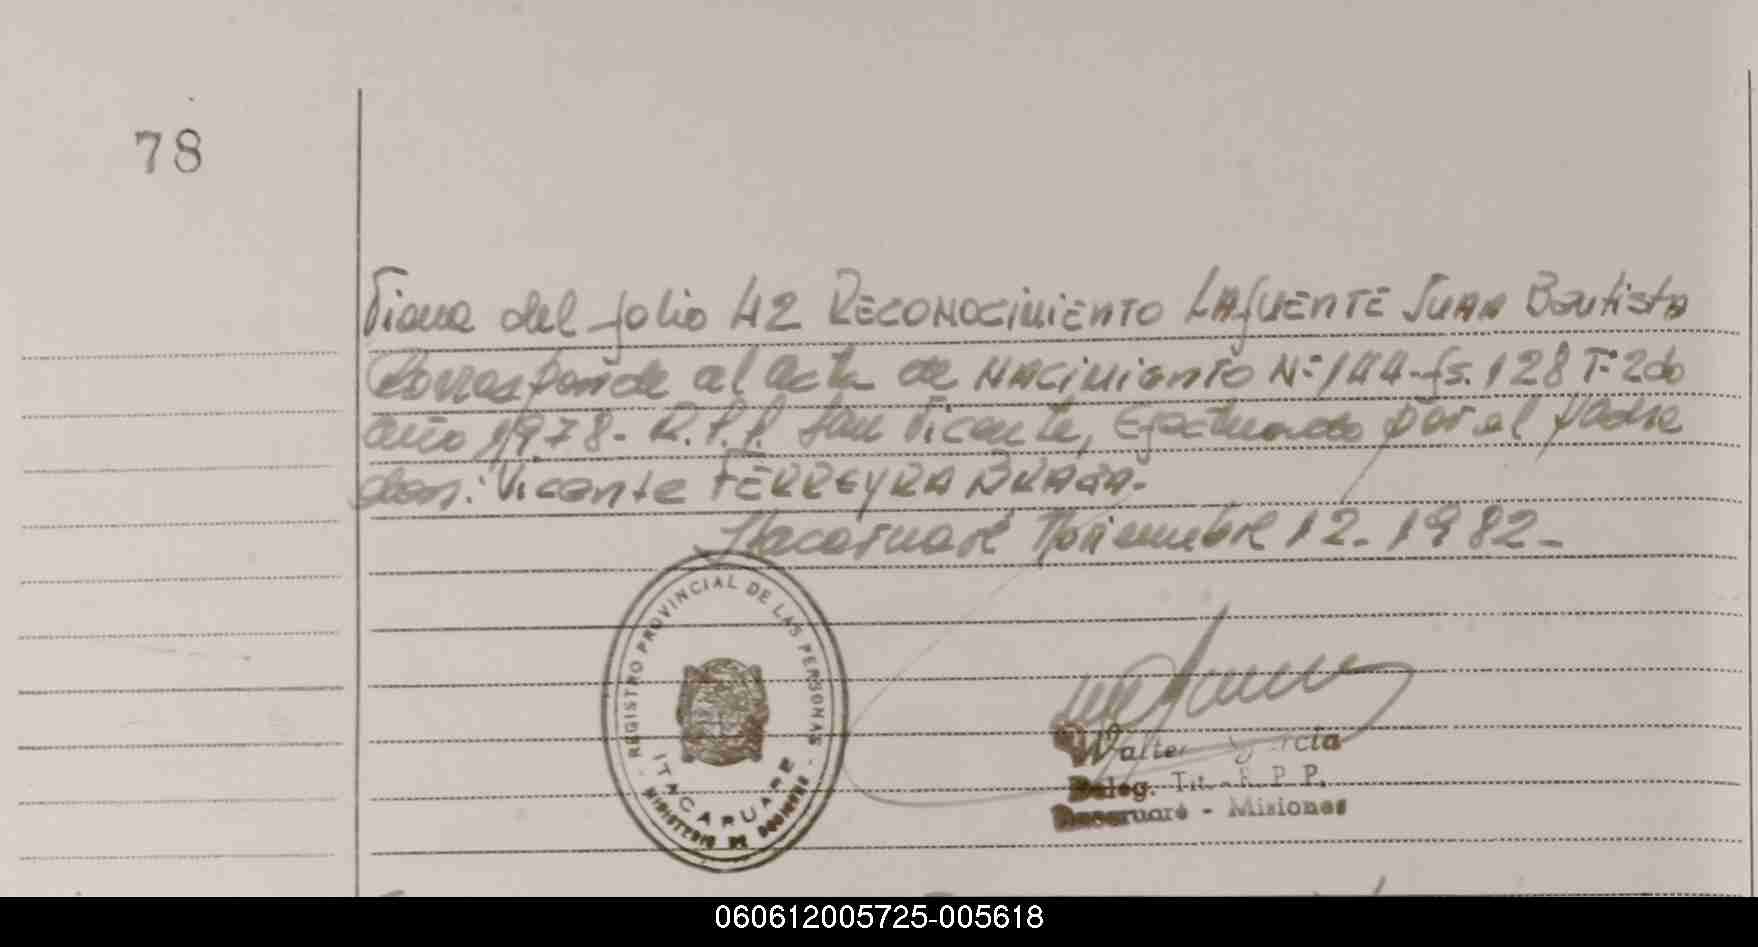 78
Viene del folio 42 RECONOCIMIENTO LAFUENTE JUAN Bautista
Corresponde al acta de NACIMIENTO Nº 144-fs. 128 Tº 2do
año 1978- R.P.P. San Vicente, Efectuado por el padre
don: Vicente FERREYRA BRAGA.
Itacaruaré Noviembre 12. 1982.-
- REGISTRO PROVINCIAL DE LAS PERSONAS -
ITACARUARE
MINISTERIO DE GOBIERNO
Walter
Deleg. Tit. R. P. P.
Itacaruaré - Misiones
060612005725-005618